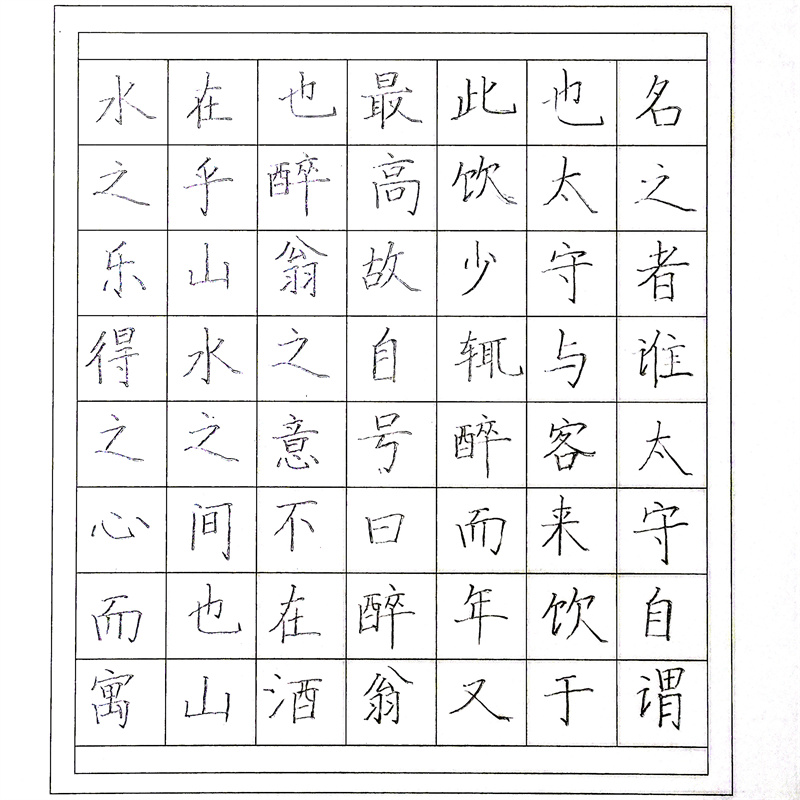 名之者谁太守自谓
也太守与客来饮于
此饮少辄醉而年又
最高故自号曰醉翁
也醉翁之意不在酒
在乎山水之间也山
水之乐得之心而寓